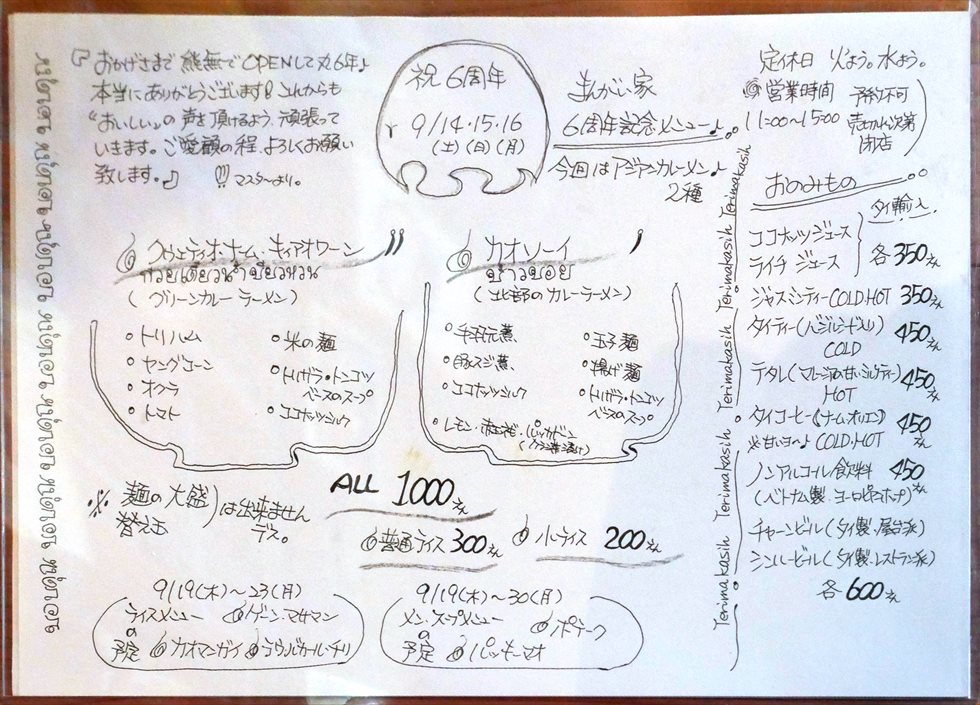 おかげさまで 熊無で OPENして丸6年♪
本当にありがとうございます! これからも
"おいしい"の声を頂けるよう、頑張って
いきます。ご愛顧の程、よろしくお願い
致します。♪ !!! マスターより。
祝 6周年
9/14・15・16
(土)(日)(月)
まんがい家
6周年記念メニュー♪
今回はアジアンカレーメン♪
2種
定休日 火よう。水よう。
◎営業時間
11:00〜15:00
予約不可
売切れ次第
閉店
クゥェティオ・ナム・キィアオワーン
(グリーンカレーラーメン)
○トリハム
○ヤングコーン
○オクラ
○トマト
○米の麺
○トリガラ・トンコツ
ベースのスープ
○ココナッツミルク
カオソーイ
(北部のカレーラーメン)
○手羽元煮
○豚スジ煮
○ココナッツミルク
○レモン・赤玉ネギ・パッカドーン
○玉子麺
○揚げ麺
○トリガラ・トンコツ
ベースのスープ
※ 麺の大盛
替え玉
は出来ません
デス。
ALL 1000えん
普通ライス 300えん
小ライス 200えん
9/19(木)〜23(月)
ライスメニュー
の
予定
ゲーン・マサマン
カオマンガイ
9/19(木)〜30(月)
メン・スープメニュー
の
予定
ポテーク
パッキーマオ
Terimakasih Terimakasih Terimakasih Terimakasih Terimakasih
おのみもの
タイ輸入
ココナッツジュース
ライチ ジュース
各350えん
ジャスミンティー COLD.HOT 350えん
タイティー(バジルシード入り) 450えん
COLD
テタレ(マレーシアの甘いミルクティー) 450えん
HOT
タイコーヒー(ナム・オリエン) 450えん
※甘いヨ〜♪ COLD.HOT
ノンアルコール飲料 450えん
(ベトナム製・ヨーロピアンホップ)
チャーンビール(タイ製・屋台派)
シンハービール(タイ製・レストラン派)
各600えん